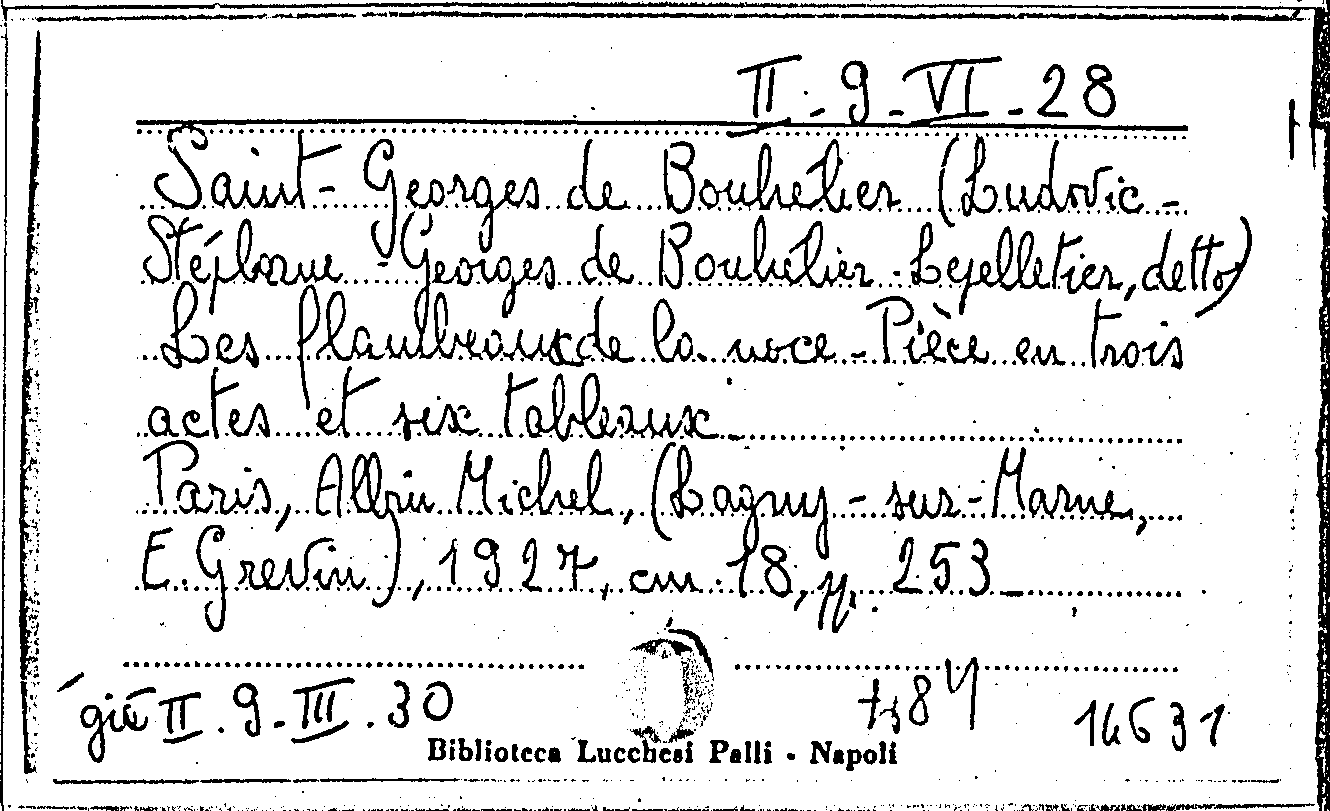 II-9-VI-28
Saint-Georges de Bouhélier (Ludovic-
Stéphane-Georges de Bouhélier-Lepelletier, detto)
Les flambeaux de la noce-Pièce en trois
actes et six tableaux
Paris, Albin Michel, (Lagny-sur-Marne,
E. Grevin), 1927, cm. 18, pp. 253
già II.9-III.30
14631
Biblioteca Lucchesi Palli - Napoli